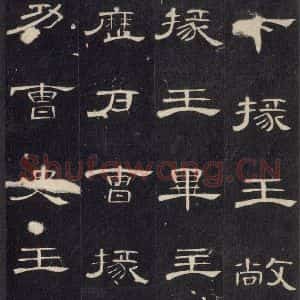 下掾王敞
掾王畢主
歷戶曹掾
功曹史王
Shufawang.CN